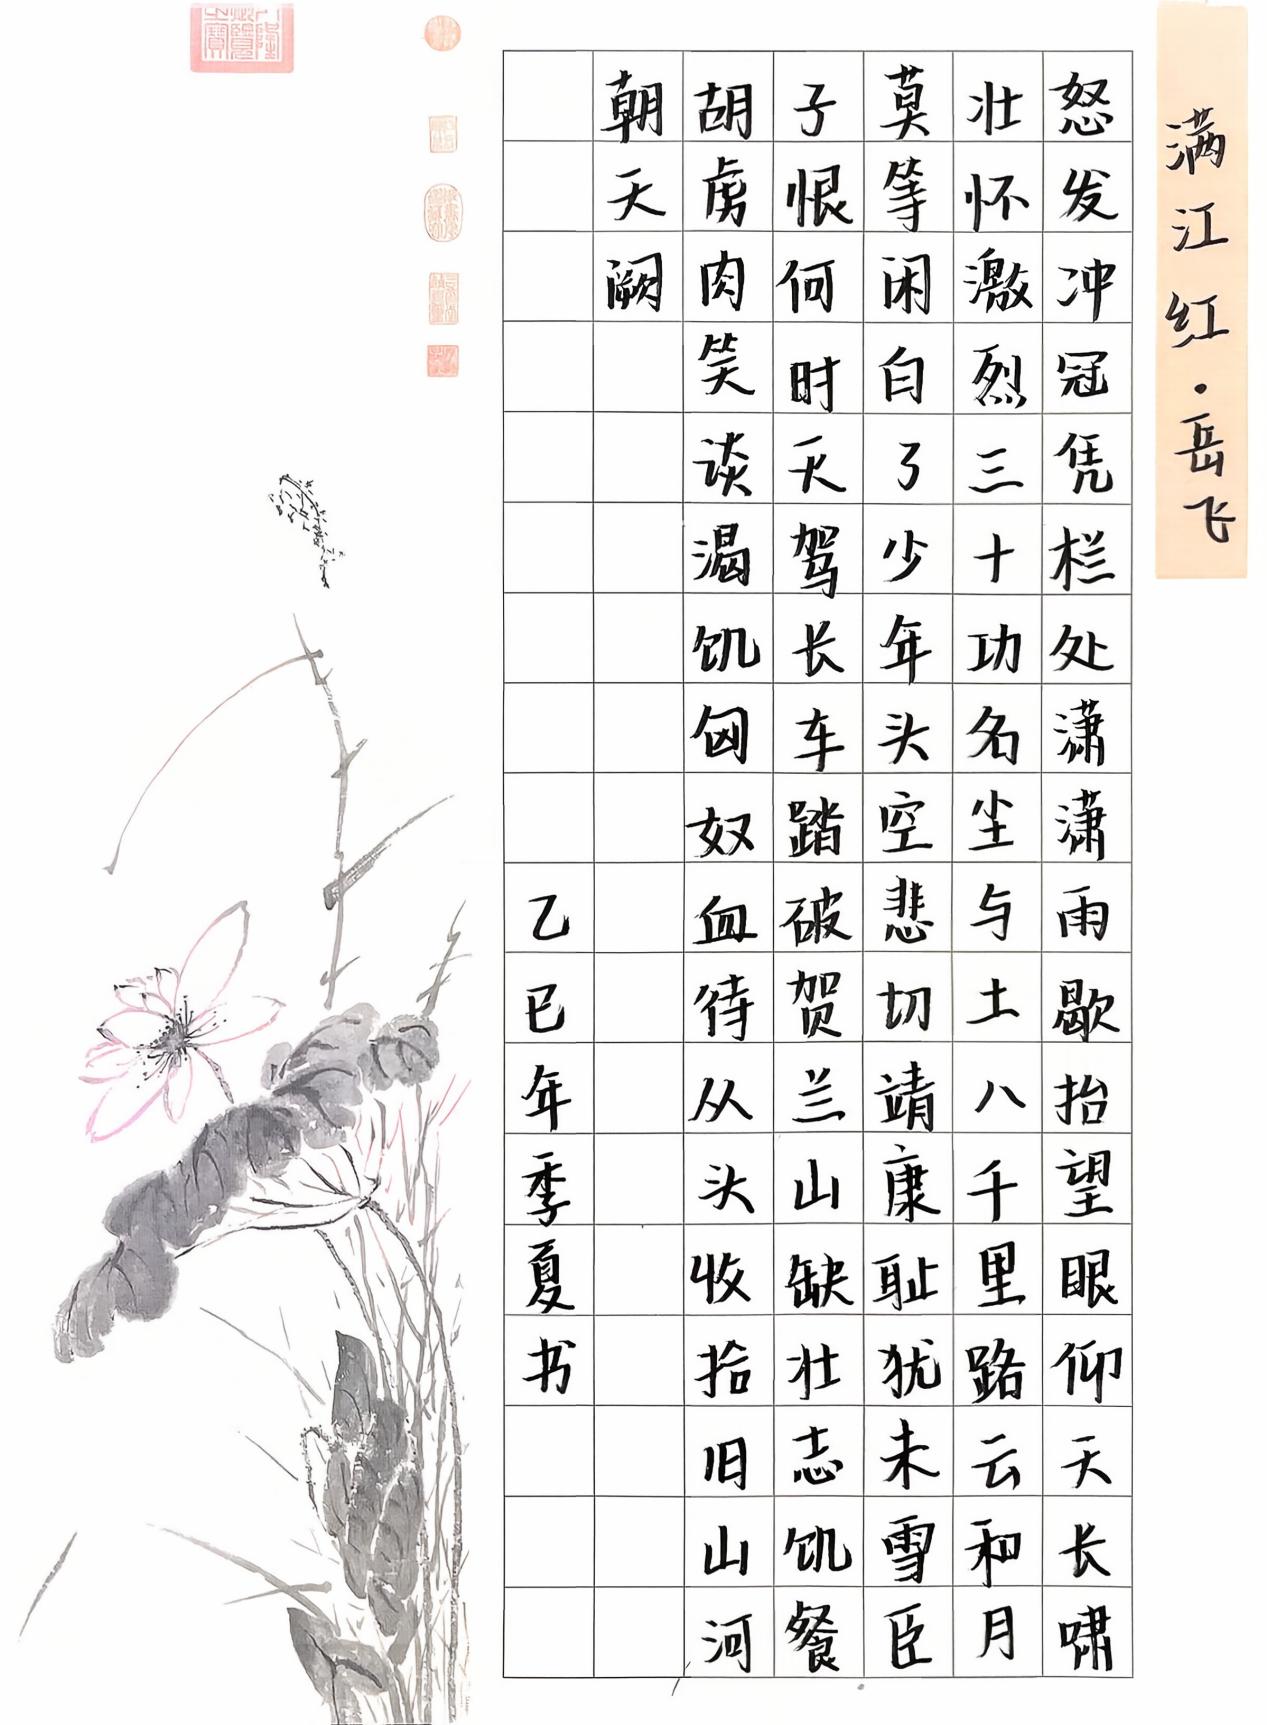 满江红·岳飞
怒发冲冠凭栏处潇潇雨歇抬望眼仰天长啸
壮怀激烈三十功名尘与土八千里路云和月
莫等闲白了少年头空悲切靖康耻犹未雪臣
子恨何时灭驾长车踏破贺兰山缺壮志饥餐
胡虏肉笑谈渴饥匈奴血待从头收拾旧山河
朝天阙
乙巳年季夏书